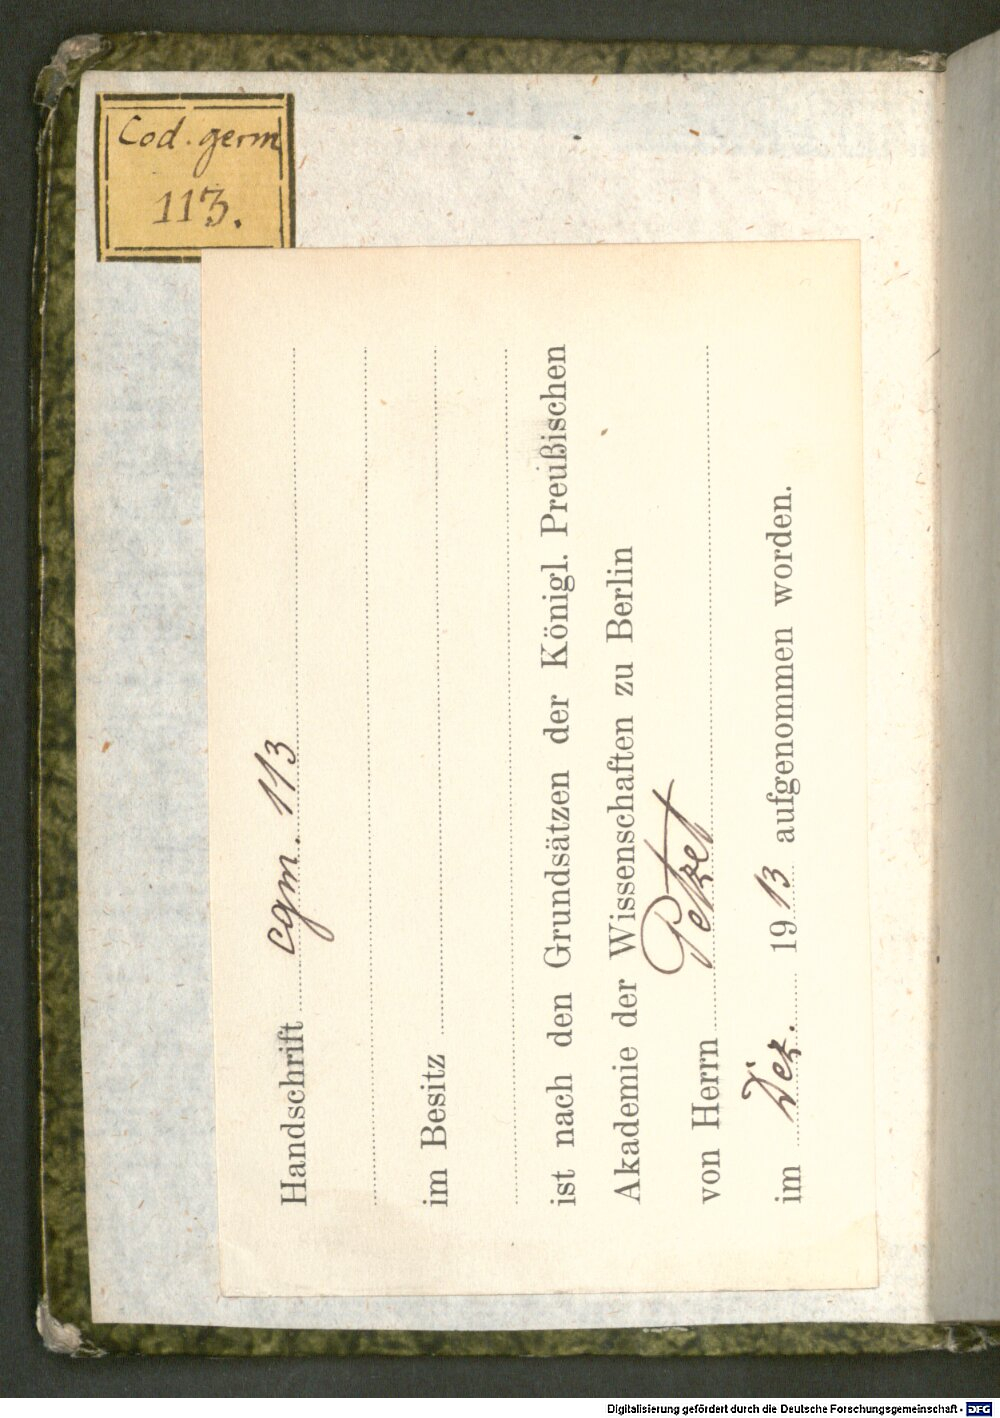 Cod. germ
113.
Handschrift cgm. 113
im Besitz
ist nach den Grundsätzen der Königl. Preußischen
Akademie der Wissenschaften zu Berlin
von Herrn Petzet
im Dez. 1913 aufgenommen worden.
Digitalisierung gefördert durch die Deutsche Forschungsgemeinschaft - DFG